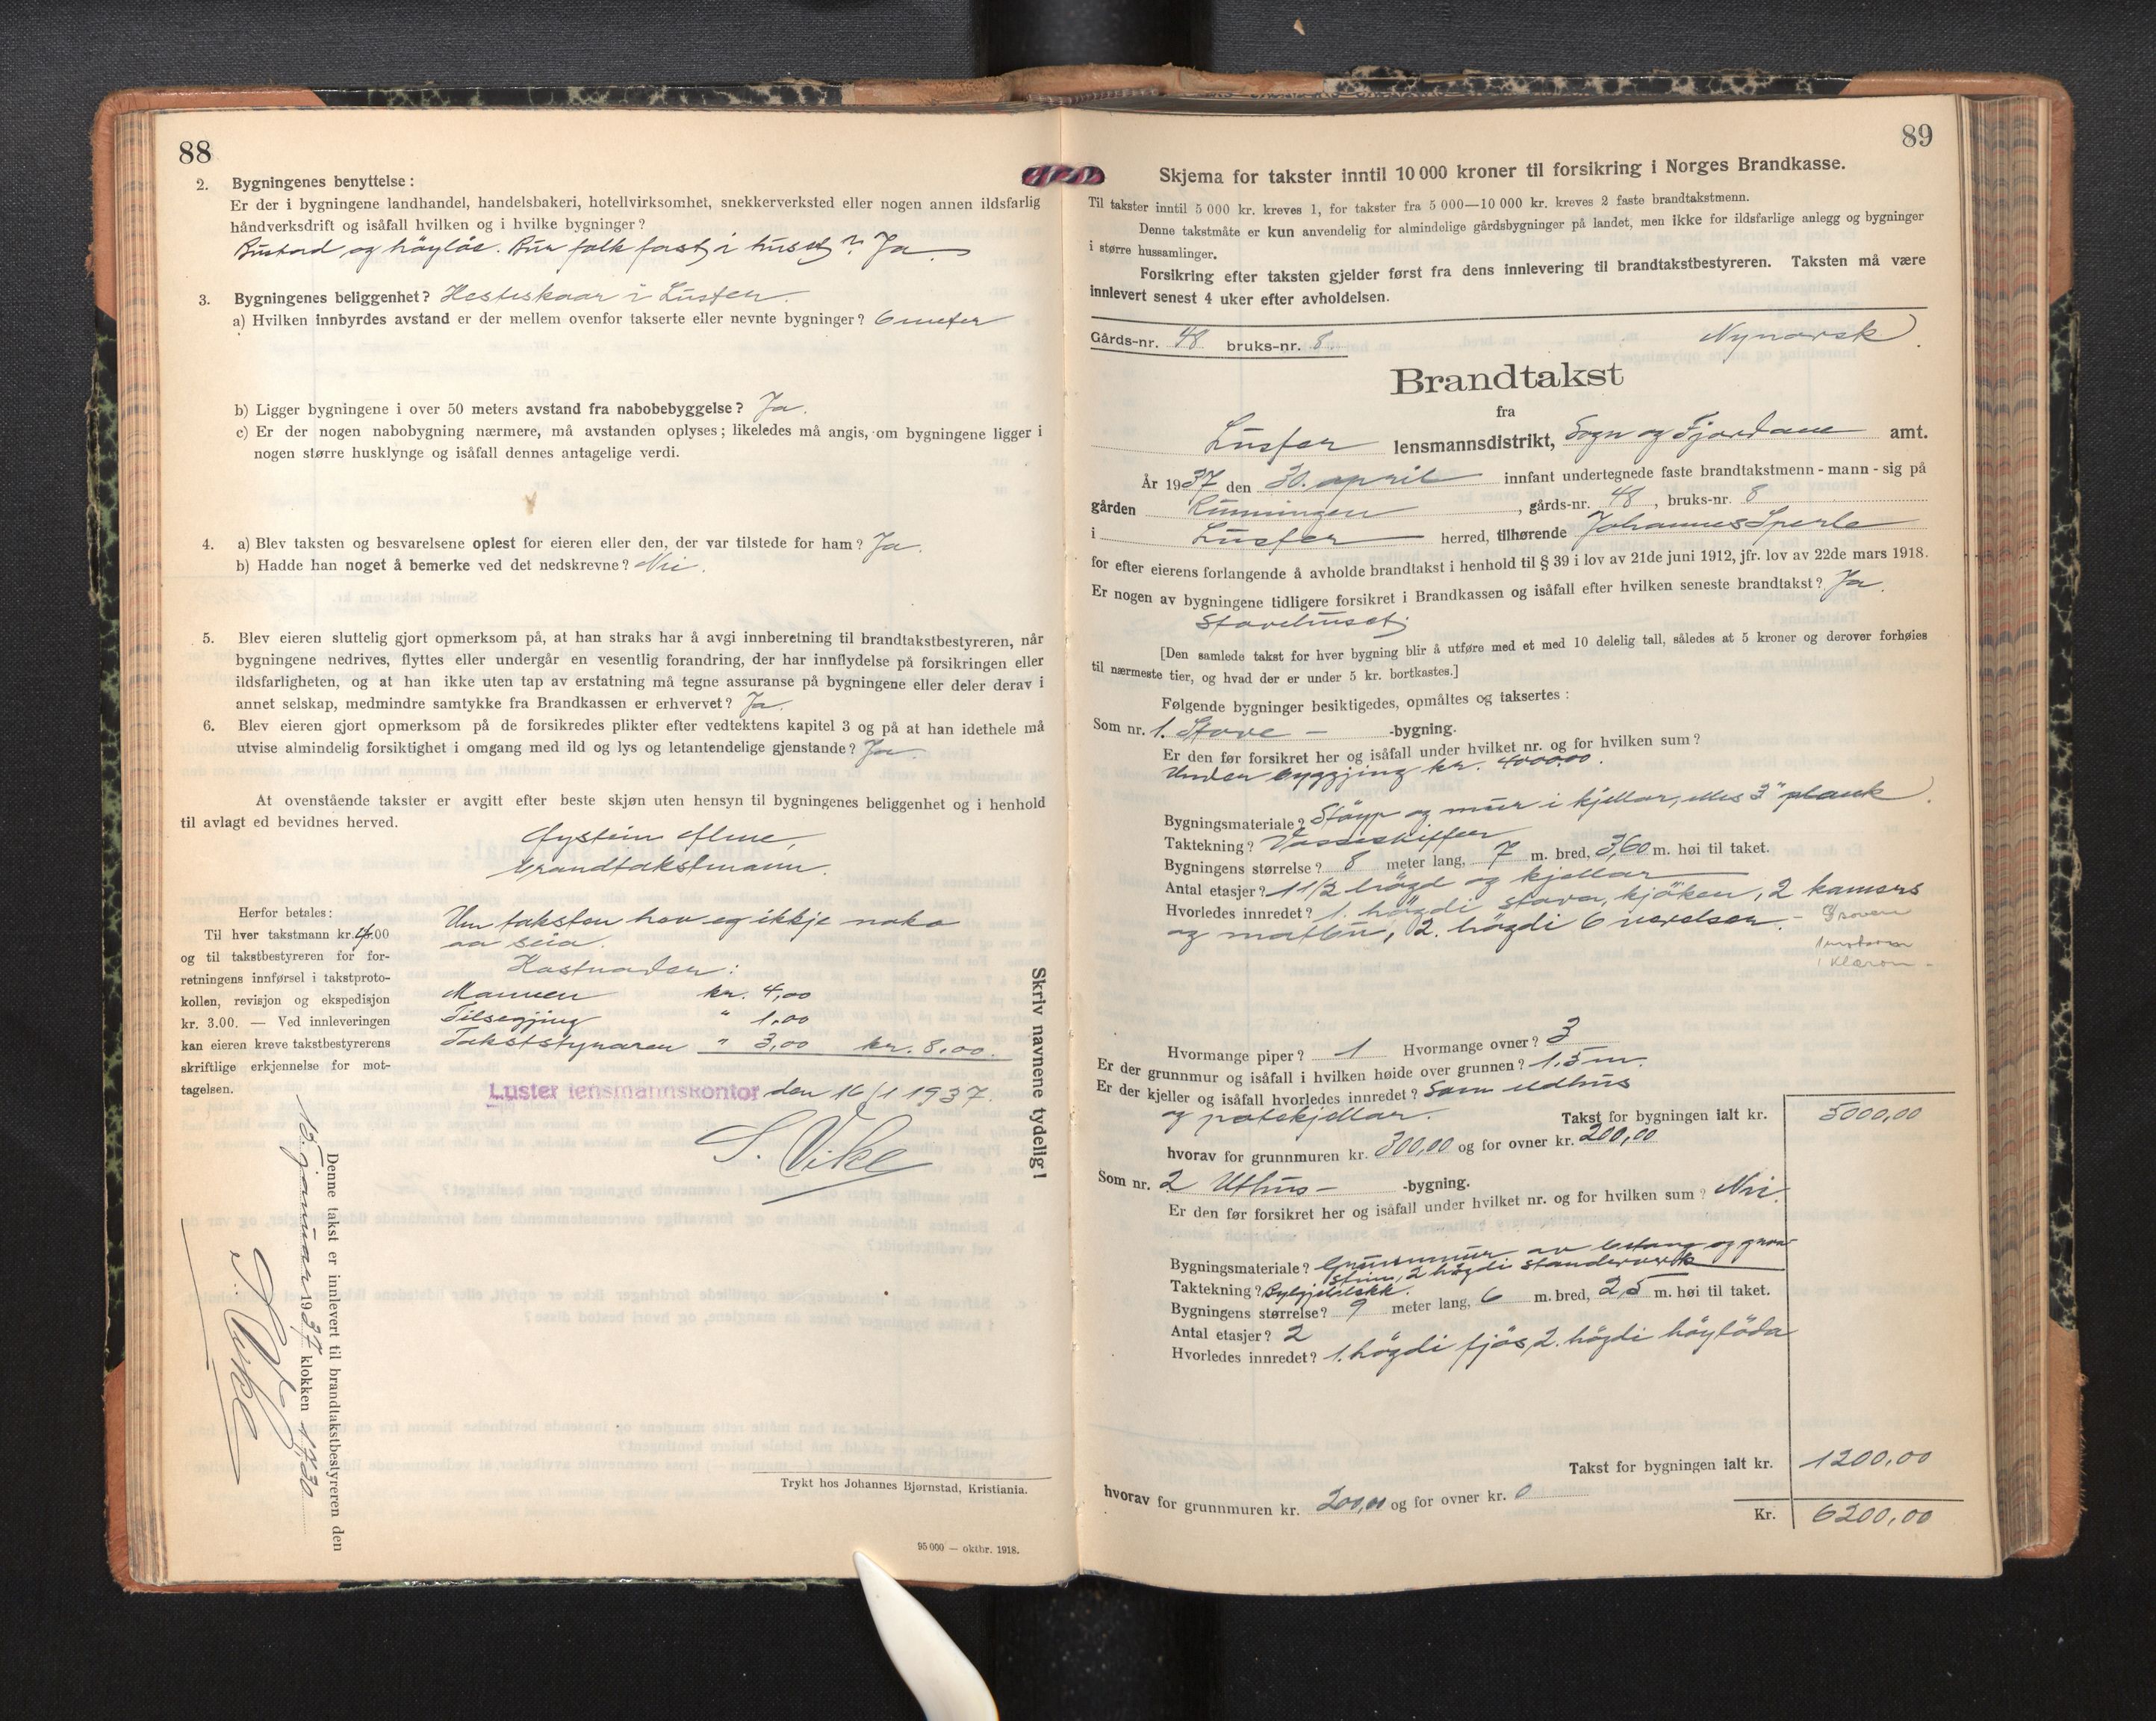 88
2. Bygningenes benyttelse:
Er der i bygningene landhandel, handelsbakeri, hotellvirksomhet, snekkerverksted eller nogen annen ildsfarlig
håndverksdrift og isåfall hvilken og i hvilke bygninger?
Bustad og höyløe. Bur folk fast i huset? Ja.
3. Bygningenes beliggenhet? Hesteskaar i Luster.
a) Hvilken innbyrdes avstand er der mellem ovenfor takserte eller nevnte bygninger? 6 meter
b) Ligger bygningene i over 50 meters avstand fra nabobebyggelse? Ja.
c) Er der nogen nabobygning nærmere, må avstanden oplyses; likeledes må angis, om bygningene ligger i
nogen større husklynge og isåfall dennes antagelige verdi.
4. a) Blev taksten og besvarelsene oplest for eieren eller den, der var tilstede for ham? Ja.
b) Hadde han noget å bemerke ved det nedskrevne? Nei.
5. Blev eieren sluttelig gjort opmerksom på, at han straks har å avgi innberetning til brandtakstbestyreren, når
bygningene nedrives, flyttes eller undergår en vesentlig forandring, der har innflydelse på forsikringen eller
ildsfarligheten, og at han ikke uten tap av erstatning må tegne assuranse på bygningene eller deler derav i
annet selskap, medmindre samtykke fra Brandkassen er erhvervet? Ja.
6. Blev eieren gjort opmerksom på de forsikredes plikter efter vedtektens kapitel 3 og på at han idethele må
utvise almindelig forsiktighet i omgang med ild og lys og letantendelige gjenstande? Ja
At ovenstående takster er avgitt efter beste skjøn uten hensyn til bygningenes beliggenhet og i henhold
til avlagt ed bevidnes herved.
Øystein
brandtakstmann.
Herfor betales:
Til hver takstmann kr. 4.00
og til takstbestyreren for for-
retningens innførsel i takstproto-
kollen, revisjon og ekspedisjon
kr. 3.00. — Ved innleveringen
kan eieren kreve takstbestyrerens
skriftlige erkjennelse for mot-
tagelsen.
Um taksten hev eg ikkje noko
aa seia.
Kostnaden:
Mannen kr. 4,00
Tilsegjing " 1.00
Takststyraren " 3,00 kr. 8,00.
Luster lensmannskontor den 16/1 1937.
S. Vike
Skriv navnene tydelig!
Denne takst er innlevert til brandtakstbestyreren den
15. januar 1937 klokken 1730
S. Vike
Trykt hos Johannes Bjørnstad, Kristiania.
95 000 — oktbr. 1918.
89
Skjema for takster inntil 10 000 kroner til forsikring i Norges Brandkasse.
Til takster inntil 5 000 kr. kreves 1, for takster fra 5 000—10 000 kr. kreves 2 faste brandtakstmenn.
Denne takstmåte er kun anvendelig for almindelige gårdsbygninger på landet, men ikke for ildsfarlige anlegg og bygninger
i større hussamlinger.
Forsikring efter taksten gjelder først fra dens innlevering til brandtakstbestyreren. Taksten må være
innlevert senest 4 uker efter avholdelsen.
Gårds-nr. 48 bruks-nr. 8. Nynorsk
Brandtakst
fra
Luster lensmannsdistrikt, Sogn og Fjordane amt.
År 1937 den 30. april innfant undertegnede faste brandtakstmenn - mann - sig på
gården , gårds-nr. 48, bruks-nr. 8
i Luster herred, tilhørende Johannes Sperle
for efter eierens forlangende å avholde brandtakst i henhold til § 39 i lov av 21de juni 1912, jfr. lov av 22de mars 1918.
Er nogen av bygningene tidligere forsikret i Brandkassen og isåfall efter hvilken seneste brandtakst? Ja.
Stovehuset
[Den samlede takst for hver bygning blir å utføre med et med 10 delelig tall, således at 5 kroner og derover forhøies
til nærmeste tier, og hvad der er under 5 kr. bortkastes.]
Følgende bygninger besiktigedes, opmåltes og taksertes:
Som nr. 1. Stove - -bygning.
Er den før forsikret her og isåfall under hvilket nr. og for hvilken sum?
Under byggjing kr. 4000.00.
Bygningsmateriale? Stöyp og mur i kjellar, elles 3" plank
Taktekning? Vasseskiffer
Bygningens størrelse? 8 meter lang, 7 m. bred, 3,60 m. høi til taket.
Antal etasjer? 1 1/2 högd og kjellar
Hvorledes innredet? 1. högdi stova, kjöken, 2 kamers
og matbu, 2. högdi 6 værelser.
Hvormange piper? 1 Hvormange ovner? 3
Er der grunnmur og isåfall i hvilken høide over grunnen? 1.5 m.
Er der kjeller og isåfall hvorledes innredet? Som vedhus
og potekjellar. Takst for bygningen ialt kr. 5000,00
hvorav for grunnmuren kr. 300,00 og for ovner kr. 200,00
Som nr. 2 Uthus- -bygning.
Er den før forsikret her og isåfall under hvilket nr. og for hvilken sum? Nei.
Bygningsmateriale? Grunnmur av betong og graa-
stein, 2. högdi standerverk
Taktekning? Bylgjeblekk.
Bygningens størrelse? 9 meter lang, 6 m. bred, 2,5 m. høi til taket.
Antal etasjer? 2
Hvorledes innredet? 1. högdi fjös, 2. högdi höylöda
Takst for bygningen ialt kr. 1200,00
hvorav for grunnmuren kr. 200,00 og for ovner kr. 0
Kr. 6200,00